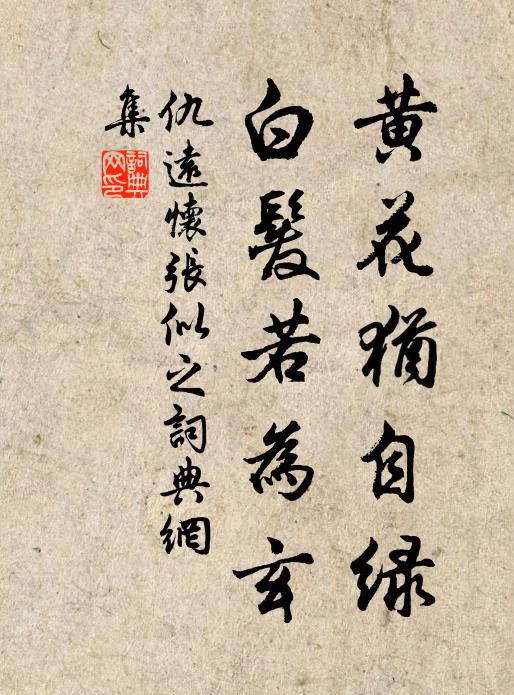 黄花犹自緑
白髮若為玄
仇遠懷張似之詞典網
集
詞典
网印